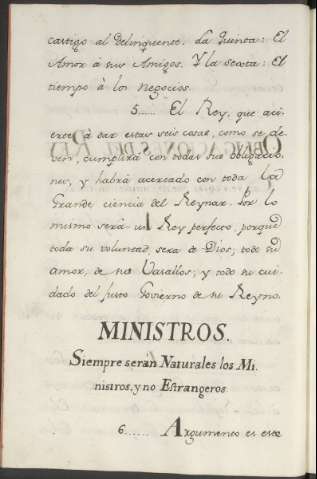 castigo al Delinquente. La Quinta: El
Amor á sus Amigos. Y la Sexta: El
tiempo á los Negocios.
5...... El Rey, que aci-
erte á dar estas seis cosas, como se de-
ven, cumplirá con todas sus obligacio-
nes, y habrá acertado con toda la
Grande ciencia del Reynar. Por lo
mismo será un Rey perfecto, porque
toda su voluntad será de Dios; todo su
amor, de sus Vasallos; y todo su cui-
dado del justo Govierno de su Reyno.
MINISTROS.
Siempre serán Naturales los Mi-
nistros, y no Estrangeros
6...... Argumento es este